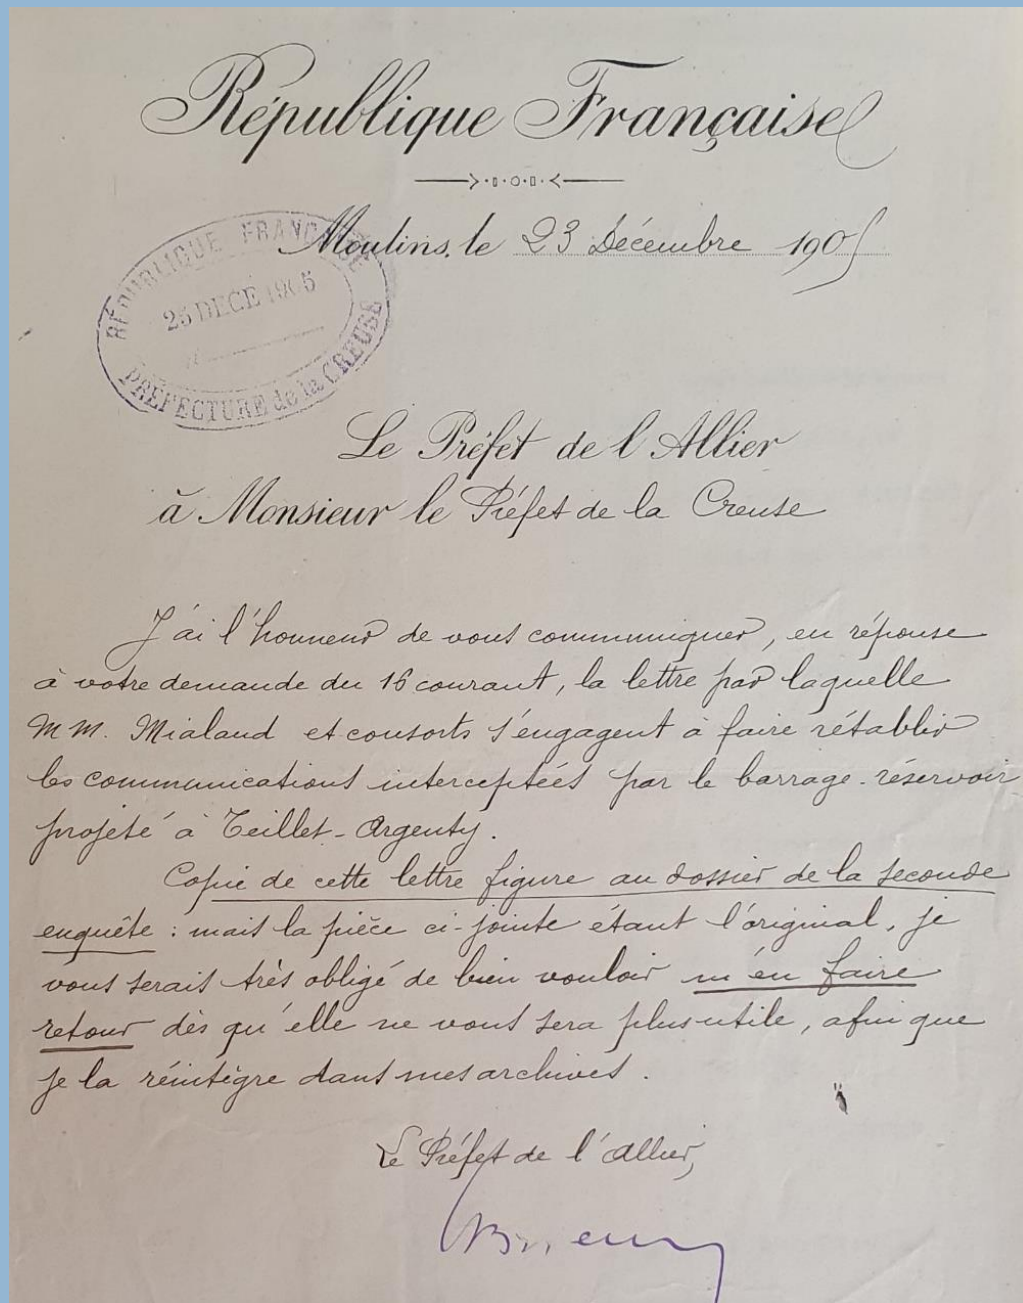 République Française
Moulins, le 23 Décembre 1905
RÉPUBLIQUE FRANÇAISE
25 DECE 1905
PRÉFECTURE de la CREUSE
Le Préfet de l'Allier
à Monsieur le Préfet de la Creuse
J'ai l'honneur de vous communiquer, en réponse
à votre demande du 16 courant, la lettre par laquelle
MM. Mialaud et consorts s'engagent à faire rétablir
les communications interceptées par le barrage-réservoir
projeté à Teillet-Argenty.
Copie de cette lettre figure au dossier de la seconde
enquête : mais la pièce ci-jointe étant l'original, je
vous serais très obligé de bien vouloir m'en faire
retour dès qu'elle ne vous sera plus utile, afin que
je la réintègre dans mes archives.
Le Préfet de l'Allier,